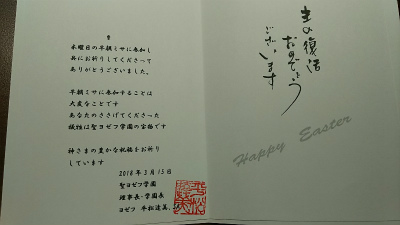 木曜日の早朝ミサに参加し
共にお祈りしてくださって
ありがとうございました。
早朝ミサに参加することは
大変なことです
あなたのささげてくださった
犠牲は聖ヨゼフ学園の宝物です
神さまの豊かな祝福をお祈り
しています
2018年3月15日
聖ヨゼフ学園
理事長・学園長
ヨゼフ 平松達美
主の復活
おめでとう
ございます
Happy Easter